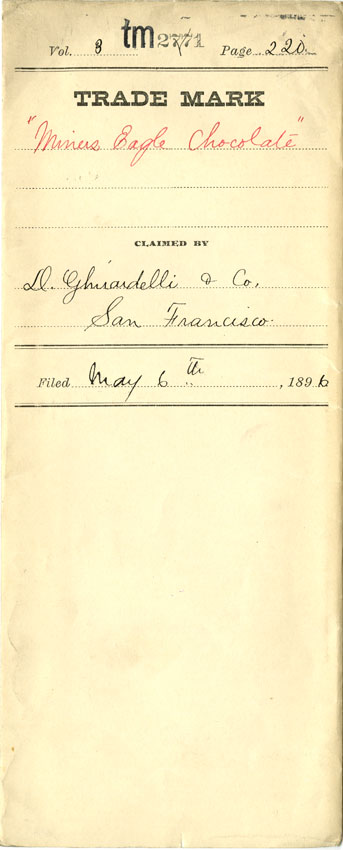 Vol. 8 tm 2771 Page 220.
TRADE MARK
"Miners Eagle Chocolate"
CLAIMED BY
D. Ghirardelli & Co.
San Francisco.
Filed May 6th, 1896